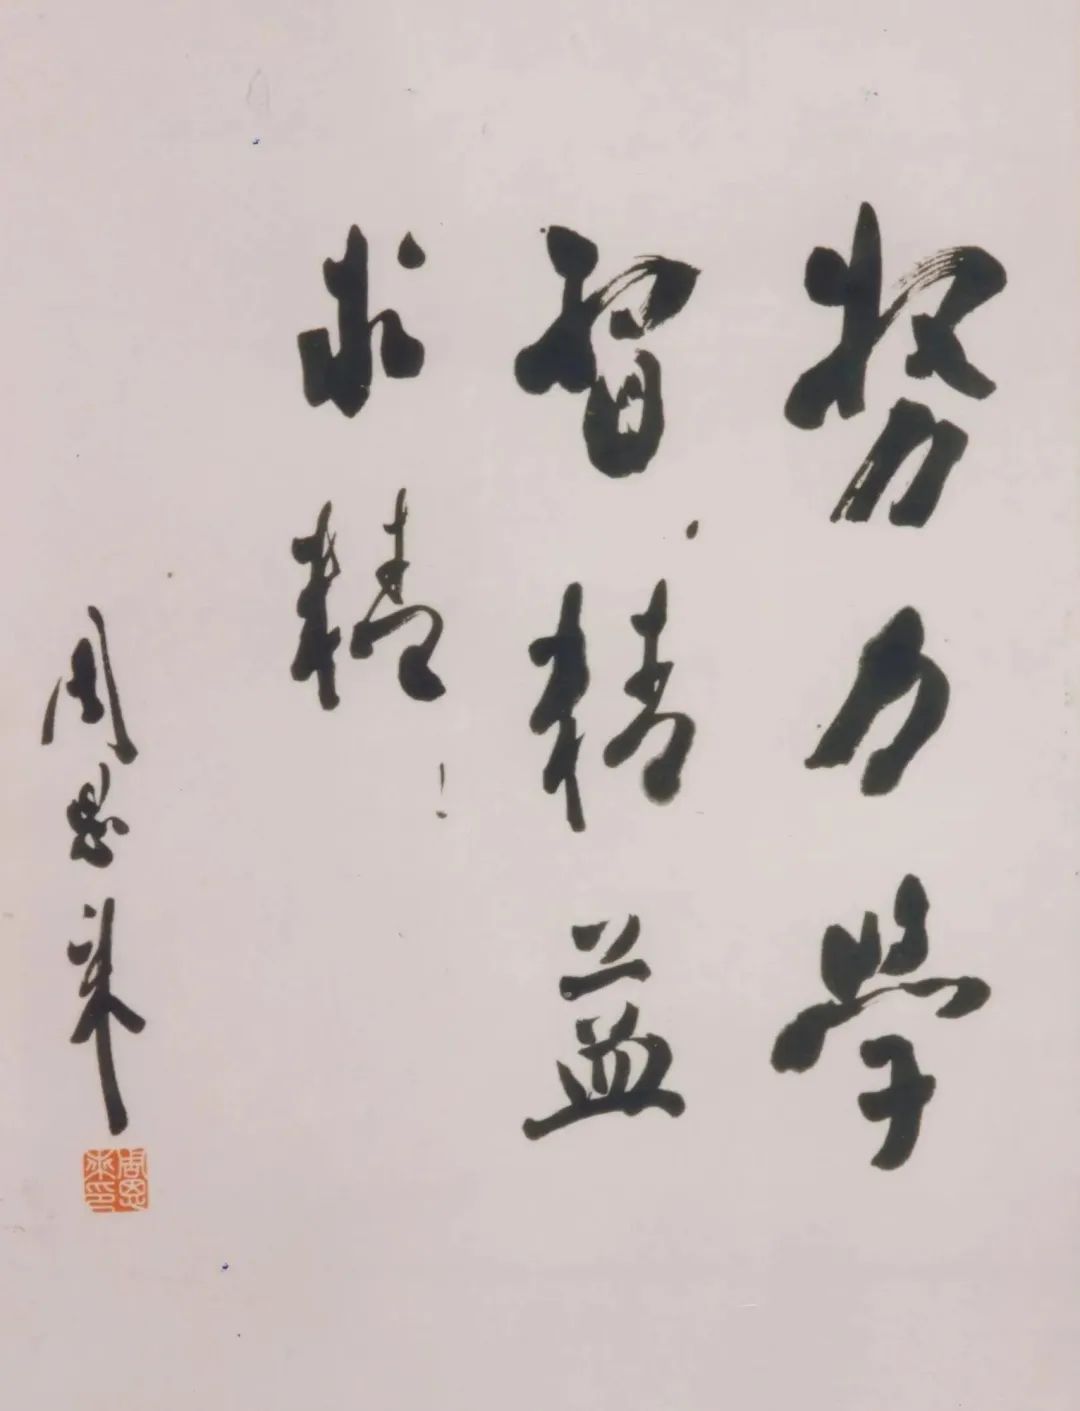 努力學
習，精益
求精！
周恩来
周恩来印